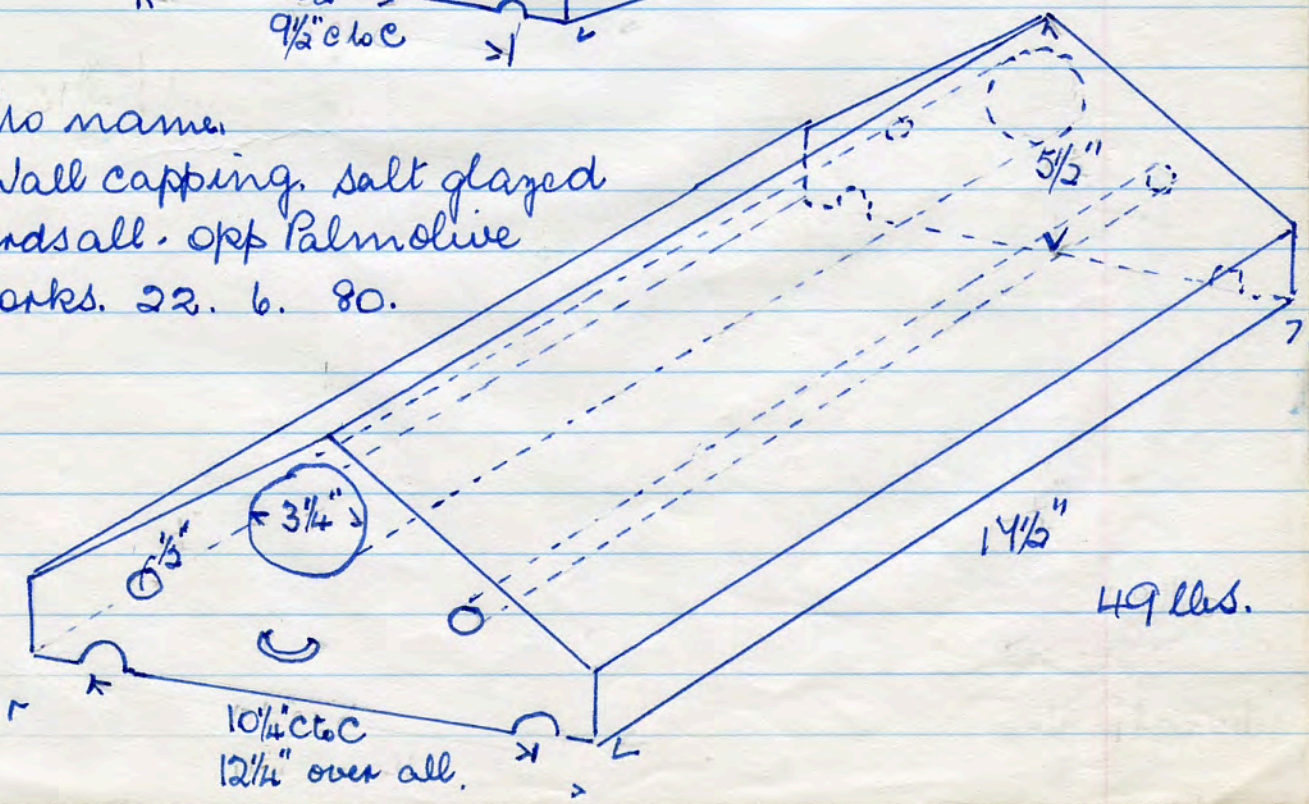 9½" C to C
No name.
Wall capping. Salt glazed
rdsall. opp Palmolive
orks. 22. 6. 80.
5½"
3¼"
½"
14½"
49 lbs.
10¼" C to C
12¼" over all.